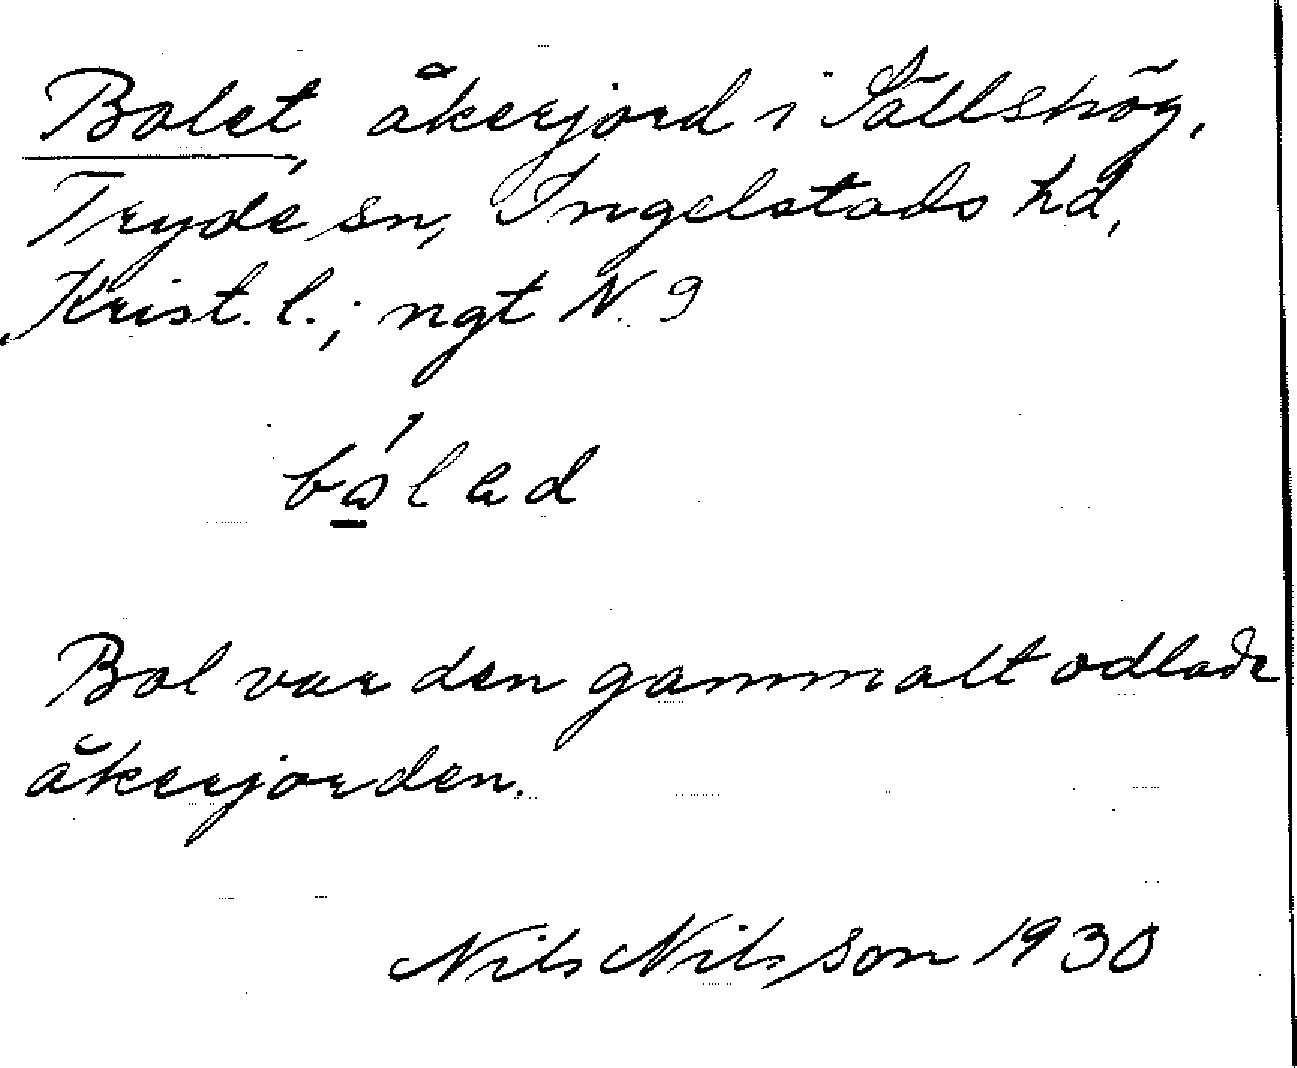 Bolet, åkerjord i Sållshög,
Tryde sn, Ingelstads hd,
Krist. l.; ngt N. 9
Bol var den gammalt odlade
åkerjorden.
Nils Nilsson 1930